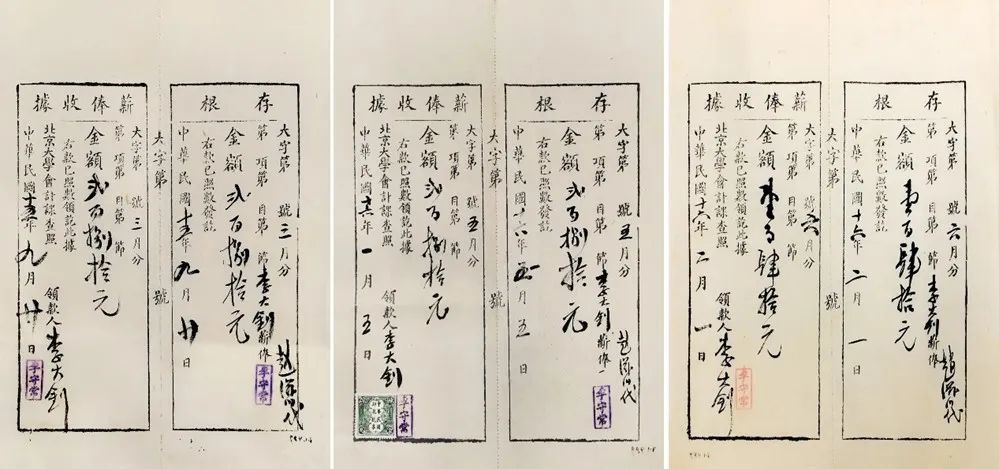 存根
大字第 號三月分
第 項第 目第 節李大釗
金額貳百捌拾元
右款已照數發訖
中華民國十五年九月廿日
李守常
大字第 號
薪俸收據
大字第 號三月分
第 項第 目第 節
金額貳百捌拾元
右款已照數領訖此據
北京大學會計課查照
領款人李大釗
中華民國十五年九月廿日
李守常
存根
大字第 號五月分
第 項第 目第 節李大釗薪俸
金額貳百捌拾元
右款已照數發訖
中華民國十六年 月五日
李守常
大字第 號
薪俸收據
大字第 號五月分
第 項第 目第 節
金額貳百捌拾元
右款已照數領訖此據
北京大學會計課查照
領款人李大釗
中華民國十六年一月五日
李守常
存根
大字第 號六月分
第 項第 目第 節李大釗薪俸
金額壹百肆拾元
右款已照數發訖
中華民國十六年二月一日
大字第 號
薪俸收據
大字第 號六月分
第 項第 目第 節
金額壹百肆拾元
右款已照數領訖此據
北京大學會計課查照
領款人李大釗
中華民國十六年二月一日
李守常